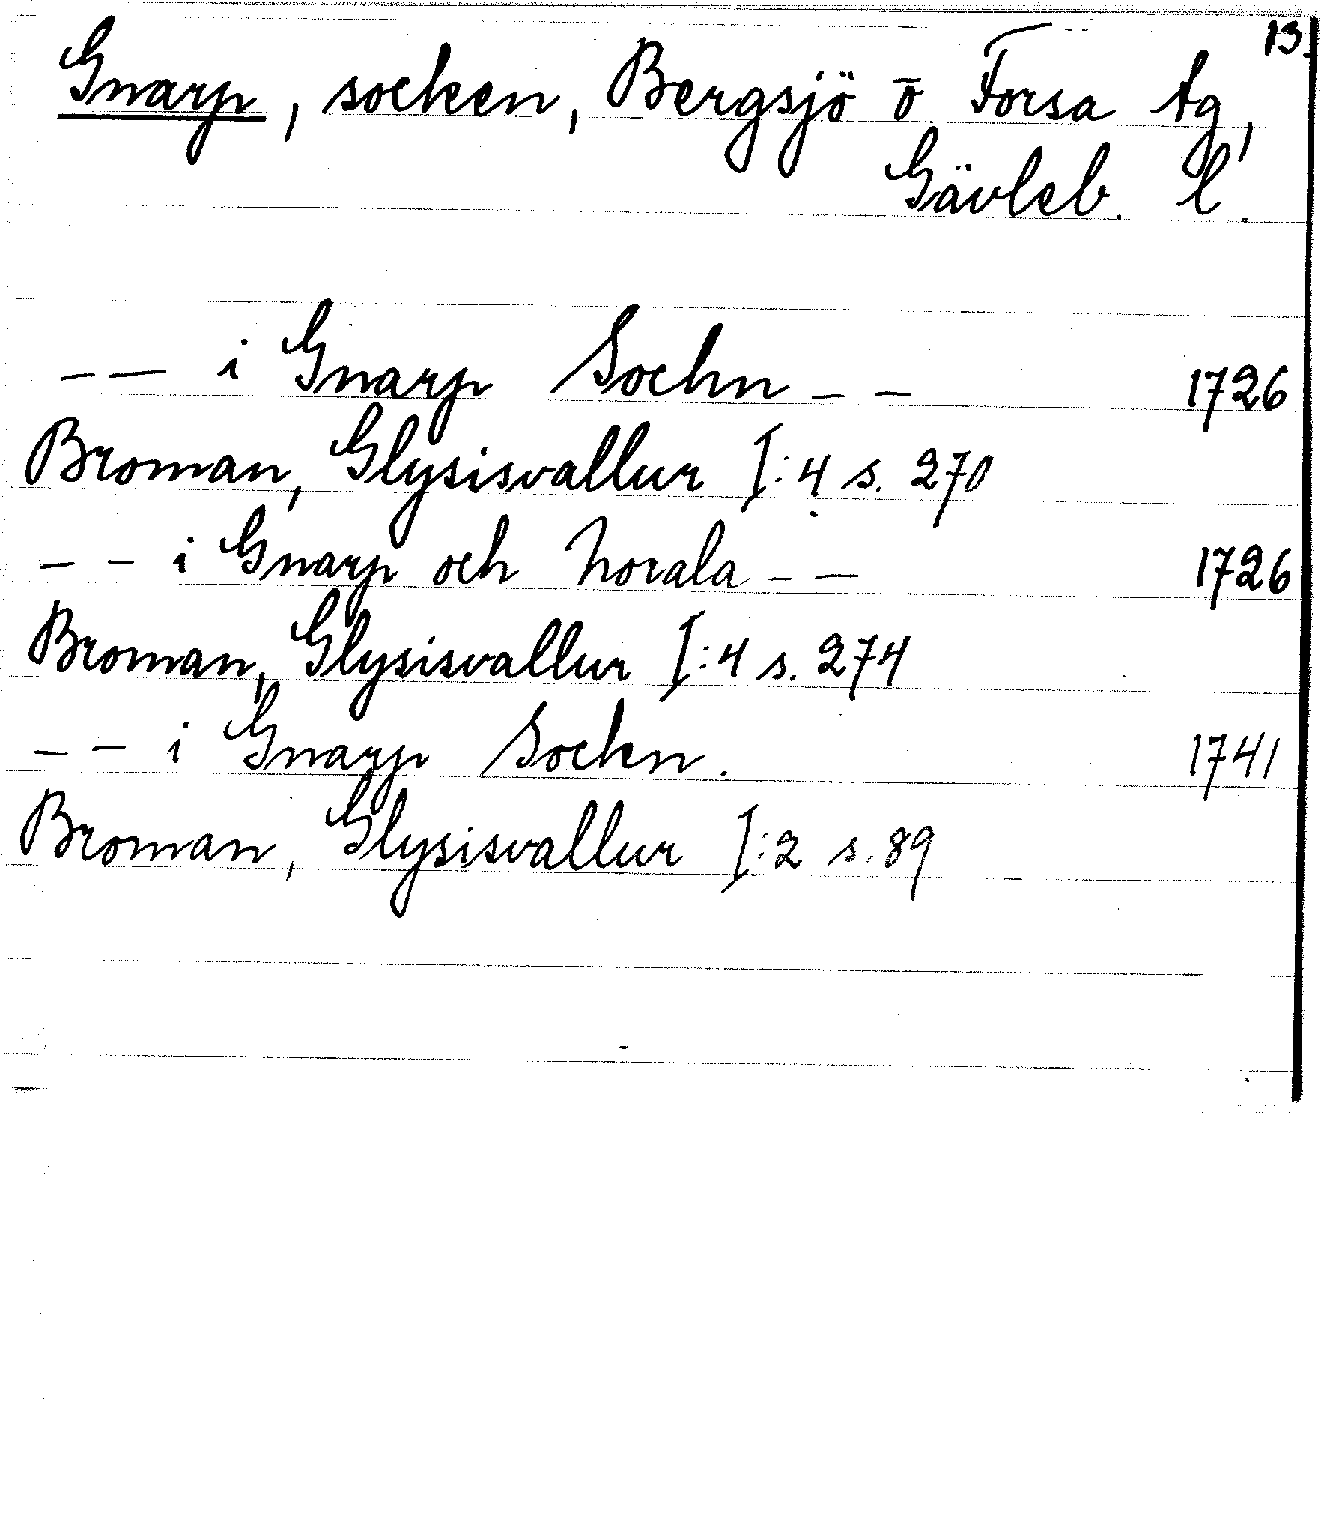 13
Gnarp, socken, Bergsjö o Forsa tg,
Gävleb. l.
- - i Gnarp Sochn - - 1726
Broman, Glysisvallur I:4 s. 270
- - i Gnarp och Norala - - 1726
Broman, Glysisvallur I:4 s. 274
- - i Gnarp Sochn. 1741
Broman, Glysisvallur I:2 s. 89